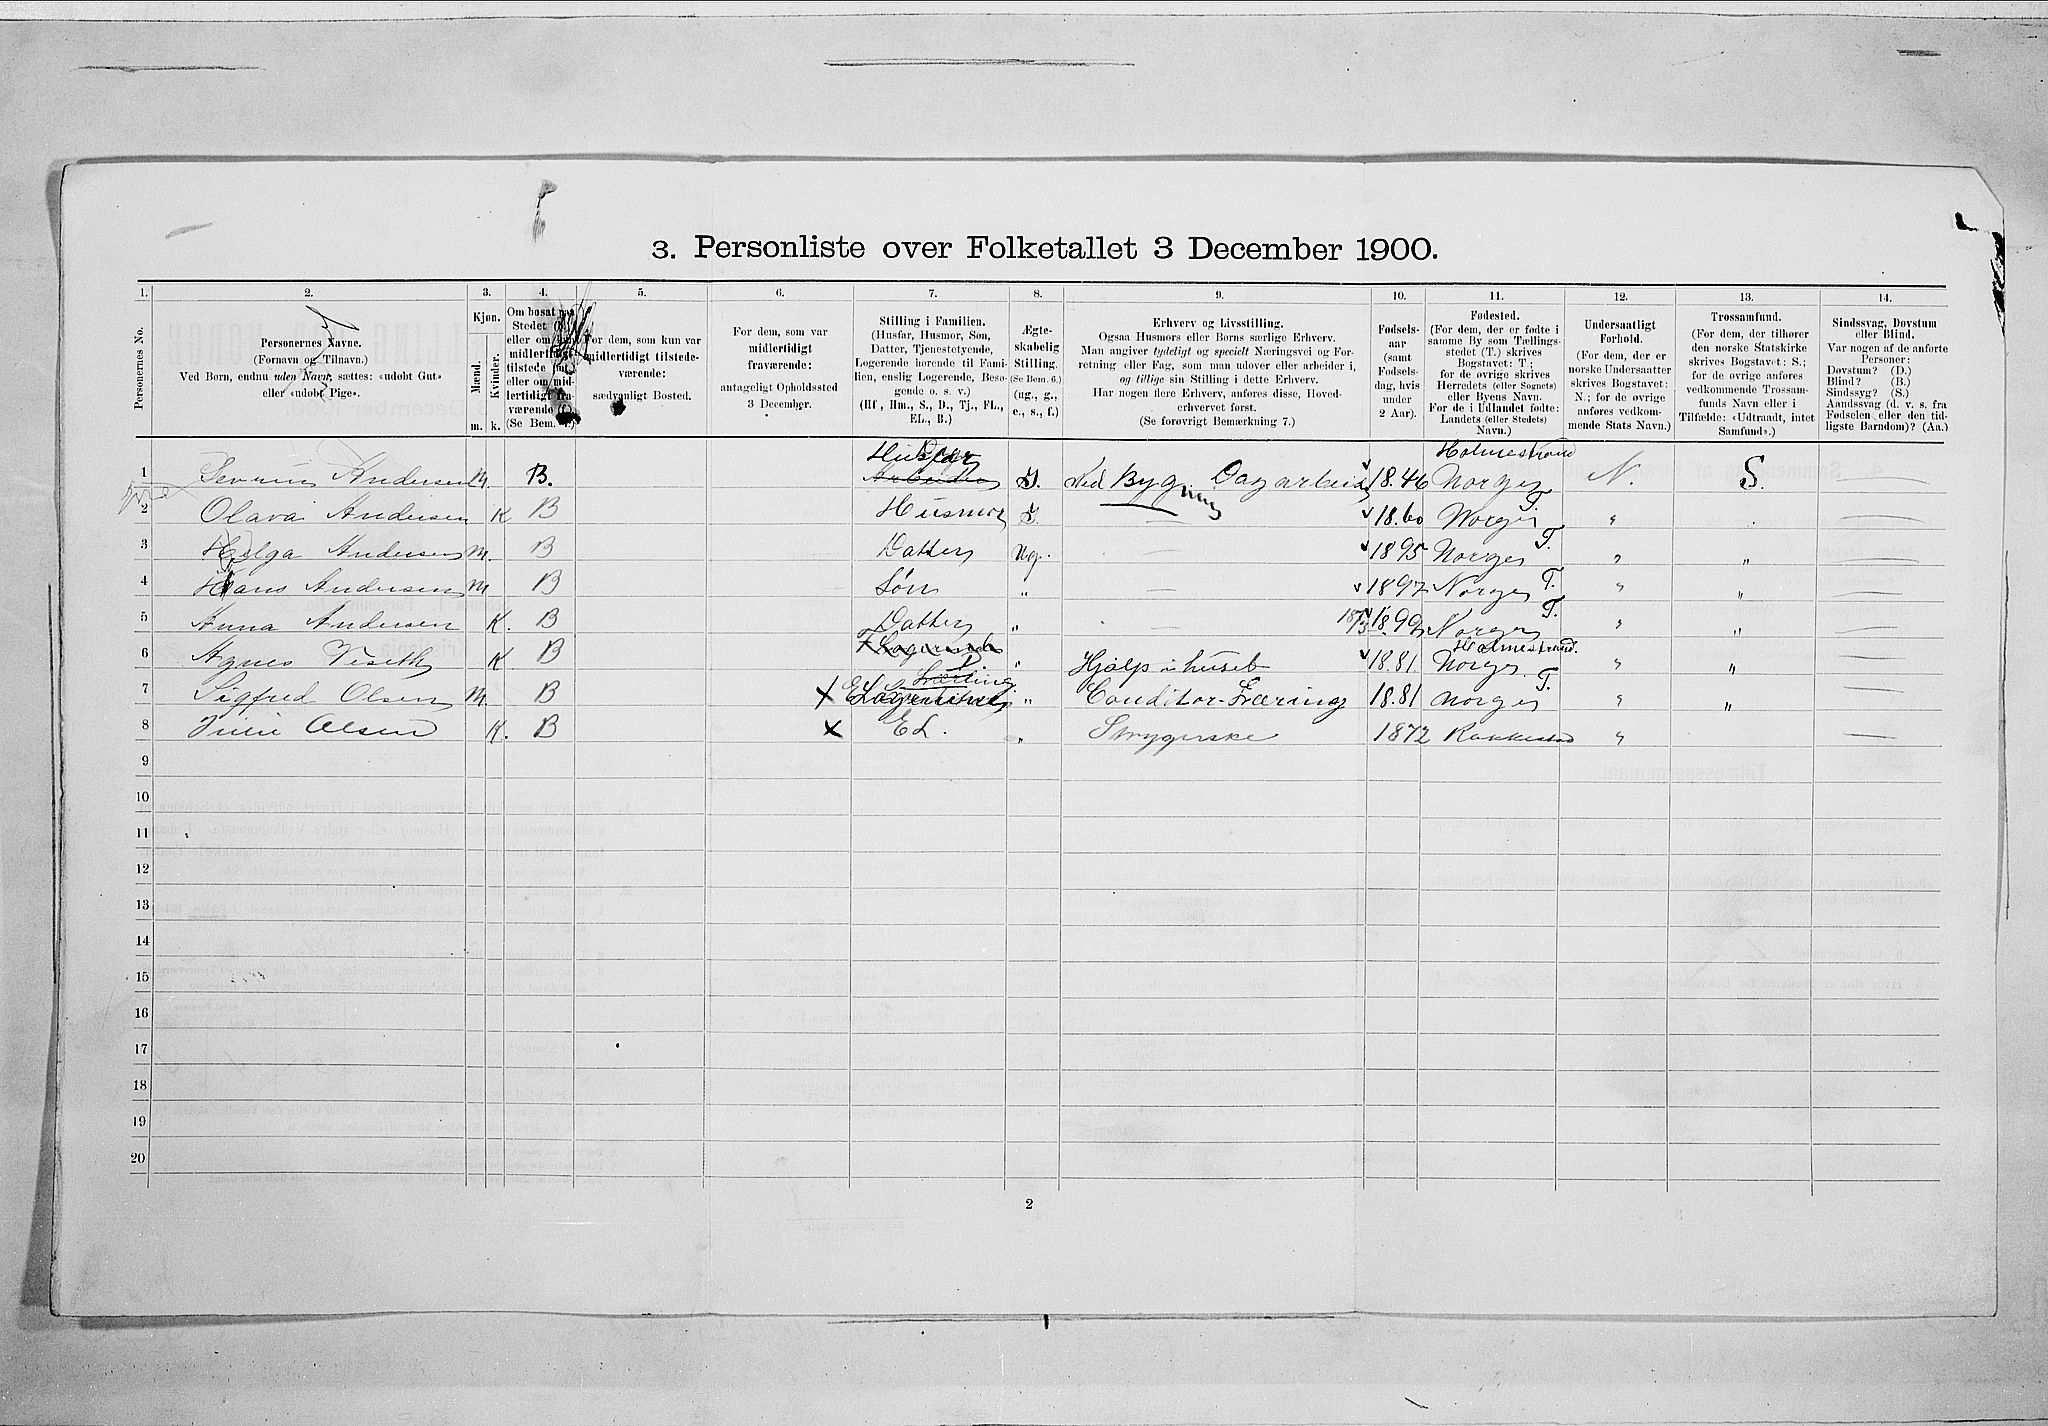 3. Personliste over Folketallet 3 December 1900.
1. 2. 3. 4. 5. 6. 7. 8. 9. 10. 11. 12. 13. 14.
Personernes No.
Personernes Navne.
(Fornavn og Tilnavn.)
Ved Børn, endnu uden Navn, sættes: «udøbt Gut»
eller «udøbt Pige».
Kjøn.
Mænd. Kvinder.
m. k.
Om bosat paa
Stedet
eller om
midlertidigt
tilstede
eller om mid-
lertidigt fra-
værende
(Se Bem. 4.)
For dem, som kun var
midlertidigt tilstede-
værende:
sædvanligt Bosted.
For dem, som var
midlertidigt
fraværende:
antageligt Opholdssted
3 December.
Stilling i Familien.
(Husfar, Husmor, Søn,
Datter, Tjenestetyende,
Logerende hørende til Fami-
lien, enslig Logerende, Besø-
gende o. s. v.)
(Hf, Hm., S., D., Tj., FL.,
EL., B.)
Ægte-
skabelig
Stilling.
(Se Bem. 6.)
(ug., g.,
e., s., f.)
Erhverv og Livsstilling.
Ogsaa Husmors eller Børns særlige Erhverv.
Man angiver tydeligt og specielt Næringsvei og For-
retning eller Fag, som man udøver eller arbeider i,
og tillige sin Stilling i dette Erhverv.
Har nogen flere Erhverv, anføres disse, Hoved-
erhvervet først.
(Se forøvrigt Bemærkning 7.)
Fødsels-
aar
(samt
Fødsels-
dag, hvis
under
2 Aar).
Fødested.
(For dem, der er fødte i
samme By som Tællings-
stedet (T.) skrives
Bogstavet: T;
for de øvrige skrives
Herredets (eller Sognets)
eller Byens Navn.
For de i Udlandet fødte:
Landets (eller Stedets)
Navn.)
Undersaatligt
Forhold.
(For dem, der er
norske Undersaatter
skrives Bogstavet:
N.; for de øvrige
anføres vedkom-
mende Stats Navn.)
Trossamfund.
(For dem, der tilhører
den norske Statskirke
skrives Bogstavet: S.;
for de øvrige anføres
vedkommende Trossam-
funds Navn eller i
Tilfælde: «Udtraadt, intet
Samfund».)
Sindssvag, Døvstum
eller Blind.
Var nogen af de anførte
Personer:
Døvstum? (D.)
Blind? (B.)
Sindssyg? (S.)
Aandssvag (d. v. s. fra
Fødselen eller den tid-
ligste Barndom)? (Aa.)
1 Severin Andersen M. B. Husfar Arbeider G. Ved Bygning Dagarbeider 1846 Holmestrand Norge N. S.
2 Olava Andersen K B Husmor G. — 1860 Norge T. „
3 Helga Andersen M. B Datter Ug. — 1895 Norge T. „ „
4 Hans Andersen M B Søn „ — 1897 Norge T. „ „
5 Anna Andersen K. B Datter „ — 1899 Norge T. „ „
6 Agnes K B Logerende „ Hjælp i huset 1881 Holmestrand. Norge „ „
7 Sigfred Olsen M. B X Logerende „ Conditor-Læring 1881 Norge T. „ „
8 Olsen K. B X EL. „ Strygerske 1872 Rakkestad „
9
10
11
12
13
14
15
16
17
18
19
20
2